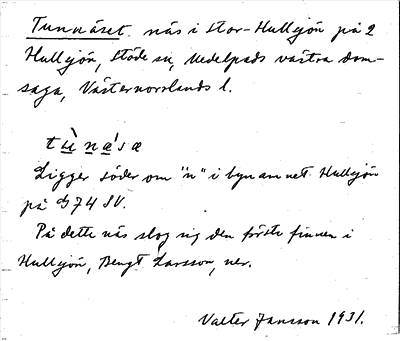 Tunnäset näs i Stor-Hullsjön på 2
Hullsjön, Stöde sn, Medelpads västra dom-
saga, Västernorrlands l.
tu̇̀næ̣ʹsæ
Ligger söder om "n" i bynamnet Hullsjön
på G 74 SV.
På dette näs slog sig den förste finnen i
Hullsjön, Bengt Larsson, ner.
Valter Jansson 1931.